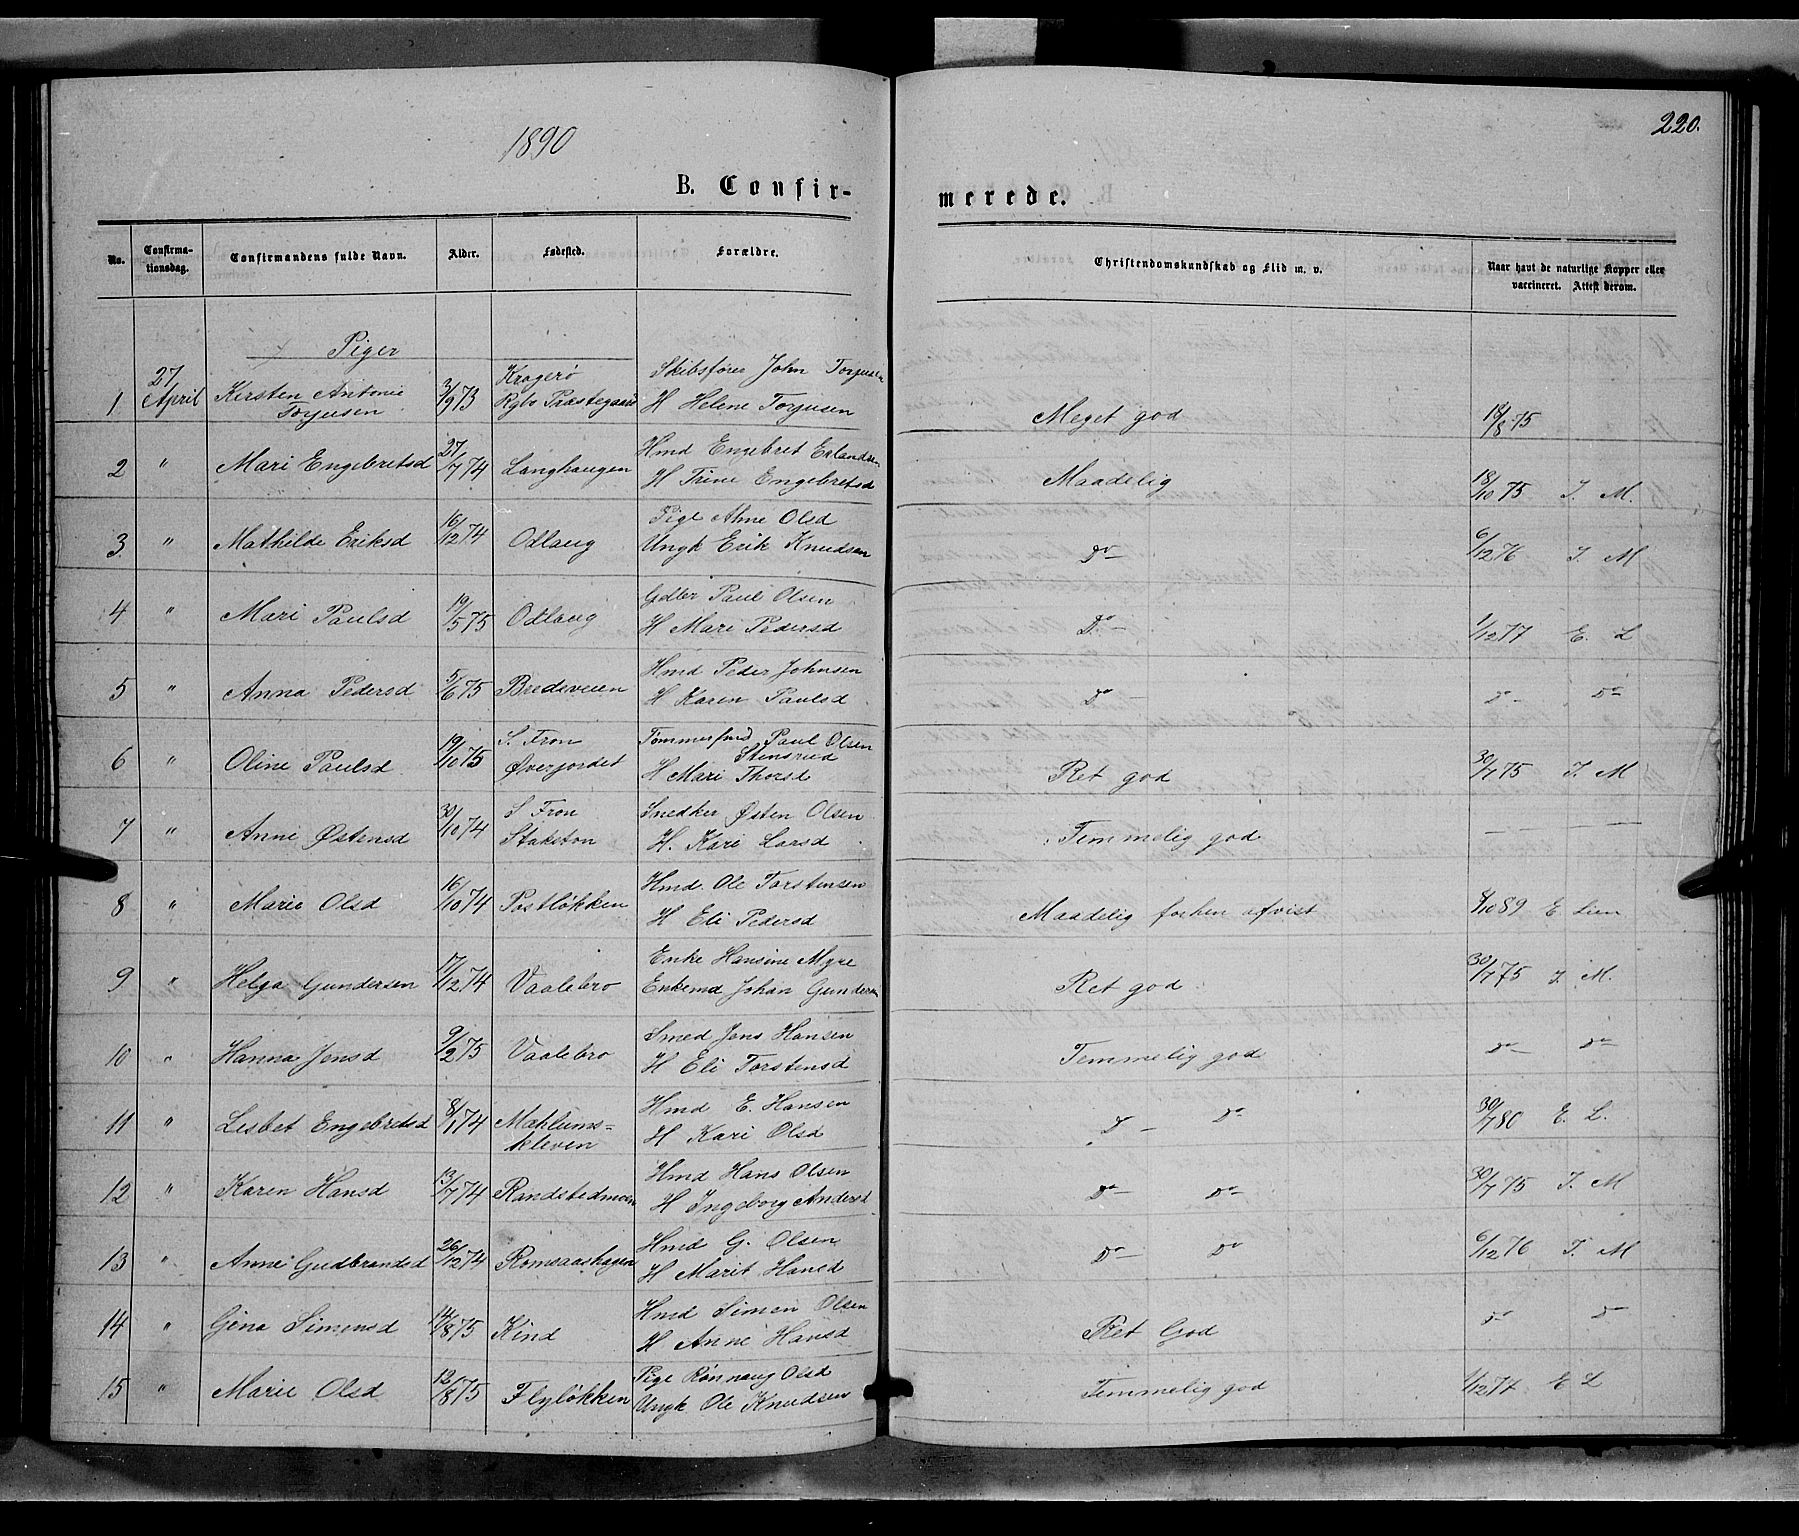 220.
1890
B. Confirmerede.
No. Confirmationsdag. Confirmandens fulde Navn. Alder. Fødested. Forældre. Christendomskundskab og Flid m. v. Naar havt de naturlige Kopper eller vaccineret. Attest derom.
Piger
1 27 April Kirsten Antonie Torjusen 3/9 73 Kragerø Rgbo Præstegaard Skibsfører John Torjusen H Helene Torjusen Meget god 18/8 75
2 " Mari Engebretsd 27/7 74 Langhaugen Hmd Engebret Erlandsen H Trine Engebretsd Maadelig 18/10 75 J. M.
3 " Mathilde Eriksd 16/12 74 Odlaug Pige Ahne Olsd Ungk Erik Knudsen Do 6/12 76 J. M
4 " Mari Paulsd 19/5 75 Odlaug Gdbr Paul Olsen H Mari Pedersd Do 1/12 77 E. L
5 " Anna Pedersd 5/6 75 Bredeveien Hmd Peder Johnsen H Karen Paulsd Do Do Do
6 " Oline Paulsd 19/10 75 S. Fron Øverjordet Tømmerfmd Paul Olsen Stensrud H Mari Thorsd Ret god 30/7 75 J. M
7 " Anne Østensd 30/10 74 S Fron Stokston Snedker Østen Olsen H. Kari Larsd Temmelig god — —
8 " Marie Olsd 16/10 74 Postløkken Hmd. Ole Torstensen H Eli Pedersd Maadelig forhen afvist 4/10 89 E Lien
9 " Helga Gundersen 17/12 74 Vaalebro Enke Hansine Myre Enkemd Johan Gundersen Ret god 30/7 75 J. M.
10 " Hanna Jensd 9/2 75 Vaalebro Smed Jens Hansen H Eli Torstensd Temmelig god Do Do
11 " Lisbet Engebretsd 8/1 74 Mæhlums=kleven Hmd E. Hansen H Kari Olsd D Do 30/7 80 E. L.
12 " Karen Hansd 13/7 74 Randstedmoen Hmd Hans Olsen H Ingeborg Andersd Do Do 30/7 75 J. M
13 " Anne Gudbrandsd 26/12 74 Romsaashagen Hmd G. Olsen H Marit Hansd Do Do 6/12 76 J. M
14 " Gina Simensd 14/8 75 Kind Hmd Simen Olsen H Anne Hansd Ret God Do Do
15 " Marie Olsd 12/8 75 Flyløkken Pige Rønnaug Olsd Ungk Ole Knudsen Temmelig god 1/12 77 E L